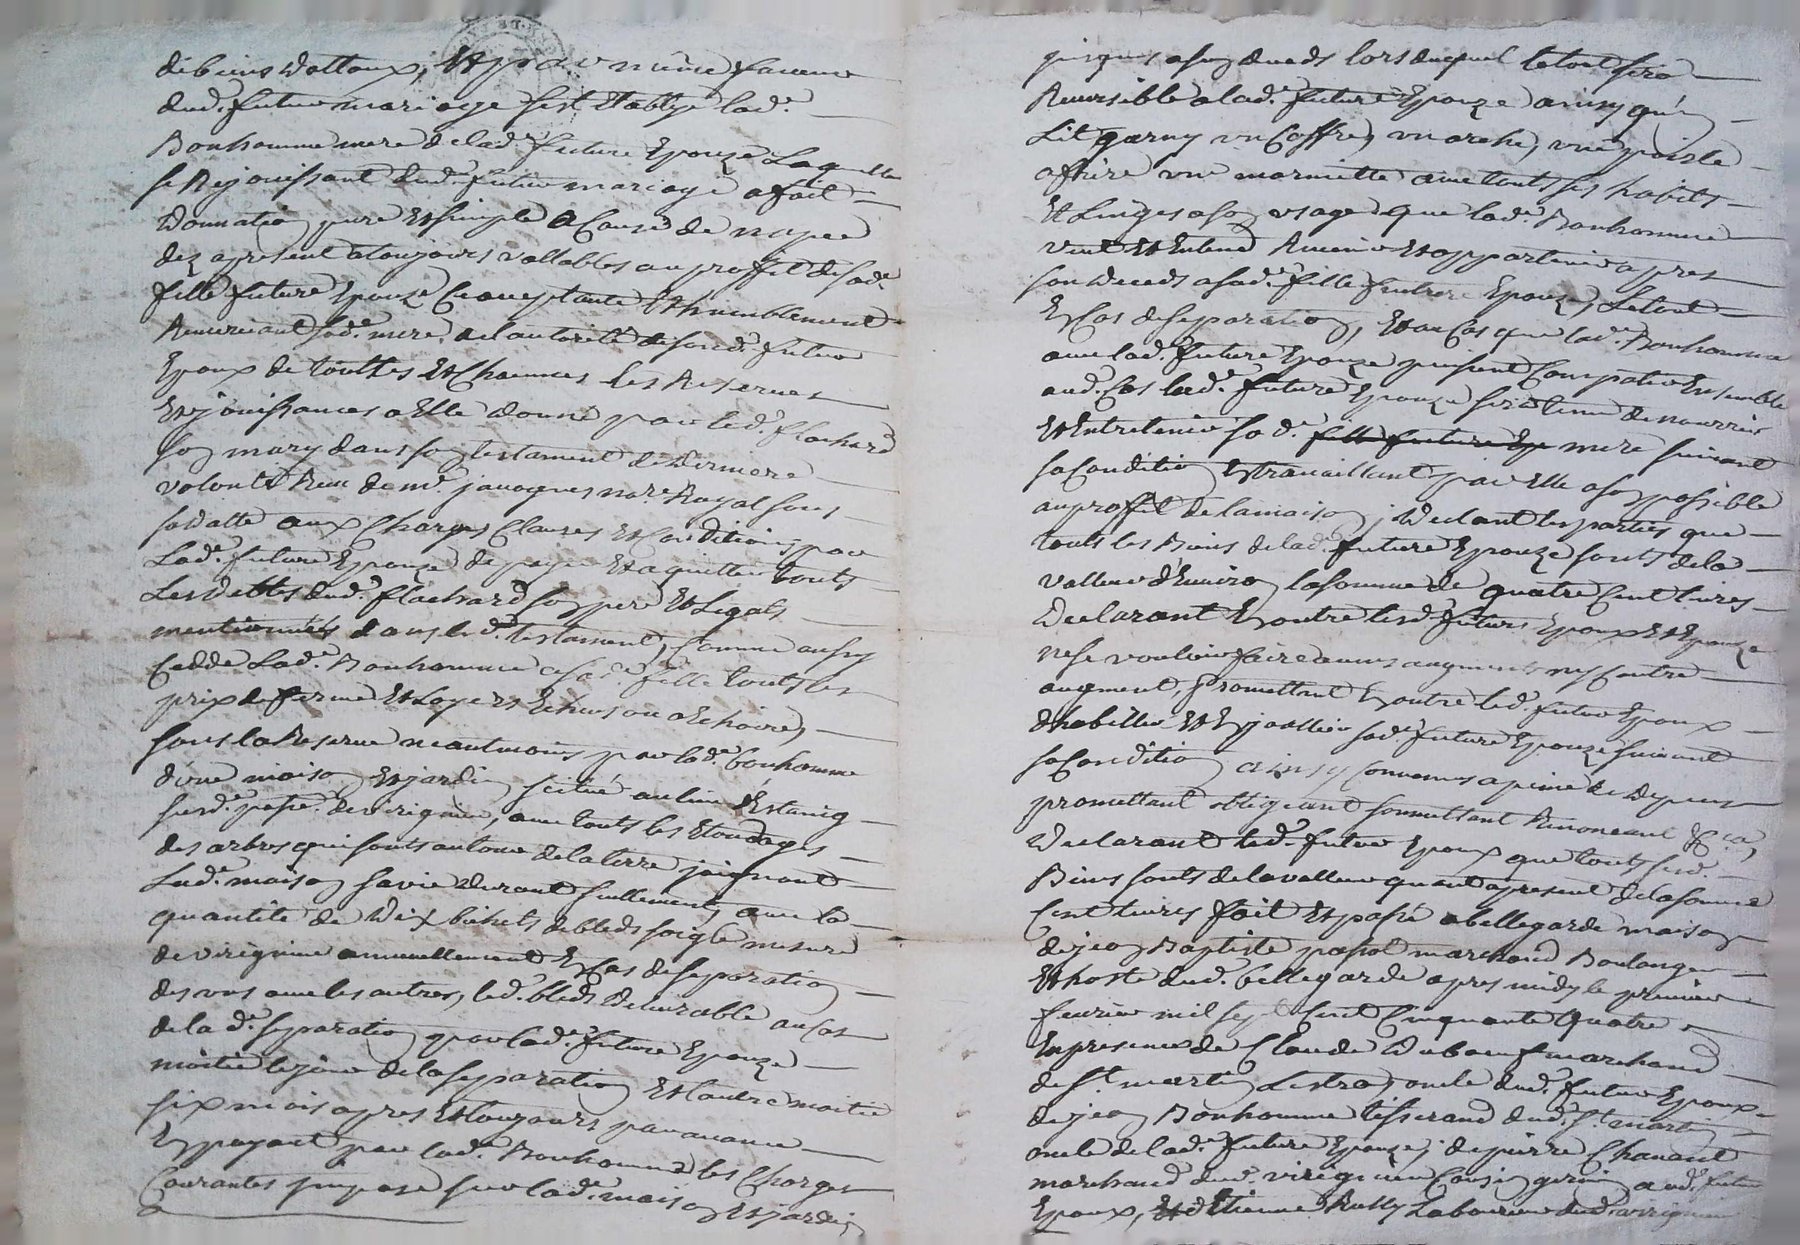 de biens dottaux, Et par mesme faveur
dud.' futur mariage s'est Etablye lad.e
Bonhomme mere de lad.e future Epouze Laquelle
se Rejouissant dud.' futur mariage a fait
Donnation pure Et simple a Cause de nopce
dez apresent atoujours vallables au proffit de sad.e
fille future Epouze Ce acceptante Et humblement
Remerciant sad.e mere, de l'autorité de sond.' futur
Epoux de touttes Et Chacunes les Reserves
Et jouissances a Elle donné par led.' flachard
son mary dans son testament de derniere
volonté Receu de me. janoques nore. Royal sous
sa datte aux Charges Clauses Et Conditions par
Lad.e future Epouze de payer Et aquitter touts
Les debtes dud.' flachard son pere Et Legats
mentionnés dans led.' testament, Comme aussy
Cedde Lad.e Bonhomme a sad.e fille touts les
prix de ferme Et Loyers Echus ou a Echoire,
sous la Reserve neantmoins par lad.e bonhomme
d'une maison Et jardin scitué au lieu d'Estanig
susd.e posse. de virignieu, avec touts les Etoudages
des arbres qui sonts autour de la terre joignant
Lad.e maison sa vie durant seullement, avec la
quantité de Dix bichets de bled soigle mesure
de virignieu annuellement En Cas de separation
des uns avec les autres, led.' bled Delivrable au Cas
de la d.e separation par lad.e future Epouze
moitié le jour de la separation Et l'autre moitié
six mois apres Et toujours par avance
En payant par lad.e Bonhomme les Charges
Courantes imposé sur lad.e maison Et jardin
jusques a son deceds lors duquel le tout sera
Reversible a lad.e future Epouze ainsy qu'un
Lit garny un Coffre, un arche, une poisle
a frire une marmitte avec touts ses habits
Et Linges a son usage que lad.e Bonhomme
veut Et Entend Revenir Et appartenir apres
son deceds a sad.e fille future Epouze, Le tout
En Cas de separation, Et au Cas que lad.e Bonhomme
avec lad.e future Epouze puissent Compatir Ensemble
aud.' Cas lad.e future Epouze sera tenue de nourrir
Et Entretenir sa d.e fille future Ep mere suivant
sa Condition En travaillant par Elle a son possible
au proffit de la maison; declarant les parties que
touts les Biens de lad.e future Epouze sonts de la
valleur d'Environ la somme de quatre Cent livres
Declarant En outre lesd.' futurs Epoux Et Epouze
ne se vouloir faire aucuns augments ny Contre
augment, promettant En outre led.' futur Epoux
d'habiller Et Enjoallier sad.e future Epouze suivant
sa Condition ainsy Convenus a peine de Depens
promettant obligeant soumettant Renonceant &Ca,
Declarant led.' futur Epoux que touts sesd.'
Biens sonts de la valleur quant apresent de la somme
Cent livres fait Et passé a bellegarde maison
de jean Baptiste passol marchand Boulanger
Et hoste dud.' bellegarde apres midy le premier
fevrier mil sept Cent Cinquante Quatre
En presence de Claude Duboeuf marchand
de St. martin Lestra, oncle dud.' futur Epoux
de jean Bonhomme tisserand dud.' St. martin
oncle de lad.e future Epouze; de pierre Chanavat
marchand dud.' virignieu Cousin germain aud.' futur
Epoux, Et d'Etienne Rully Laboureur dud.' virignieu